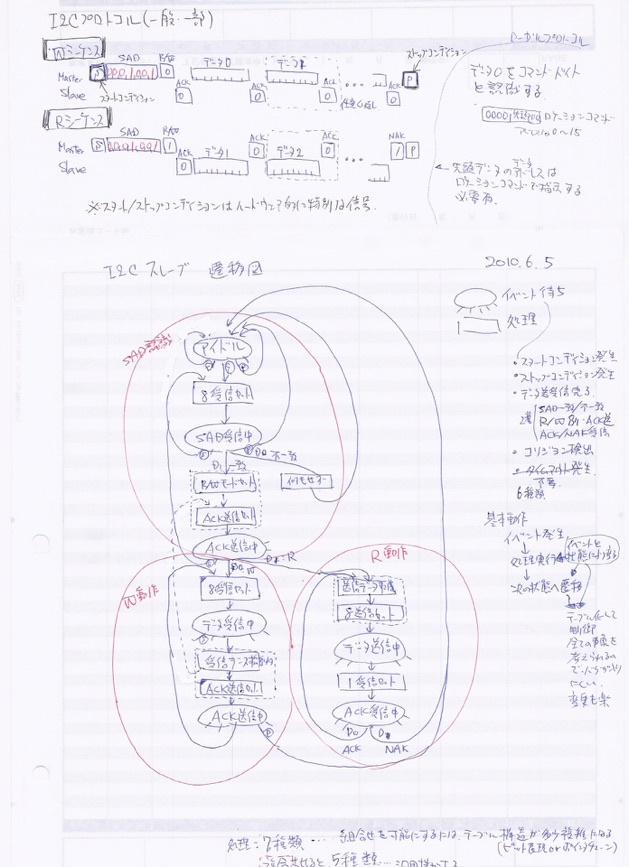 I2Cプロトコル(一般・一部)
Wシーケンス
SAD
R/W
データ0
ストップコンディション
Master
S
0
P
Slave
ACK
0
ACK
0
ACK
0
スタートコンディション
Rシーケンス
SAD
R/W
ACK
ACK
NAK
Master
S
1
1
P
Slave
ACK
0
データ1
0
データ2
0
データ0をコマンドバイト
と認識する
ロケーションコマンド
アドレス 0〜15
← 先頭データのアドレスは
ロケーションコマンドで指定する
必要有.
※スタート/ストップコンディションはハードウェア的に特別な信号.
I2C スレーブ 遷移図
2010.6.5
イベント待ち
処理
アイドル
8受信セット
SAD受信中
一致
不一致
R/Wモードセット
何もせず
ACK送信セット
ACK送信中
W動作
R動作
8受信セット
データ受信中
ACK送信セット
ACK送信中
送信データ準備
8送信セット
データ送信中
1受信セット
ACK受信中
ACK
NAK
・スタートコンディション発生
・ストップコンディション発生
・データ送受信完了
SAD一致/不一致
ACK/NAK受信
・コリジョン検出
・タイムアウト発生
不要
6種類
基本動作
イベント発生
↓
処理実行
イベントと
状態により異る
↓
次の状態へ遷移
テーブル化して
制御
全ての事象を
考えられるの
でバグが出
にくい
変更も楽
処理:7種類 … 組合せを可能にするには、テーブル構造が多少複雑になる
(ビット表現orポインタチェーン)